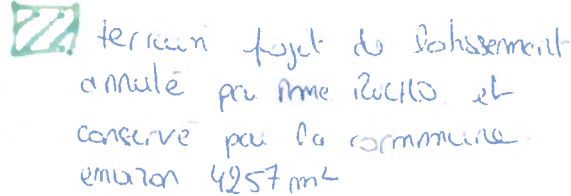 terrain projet de lotissement
annulé par Mme et
conservé par la commune
environ 4257 m²